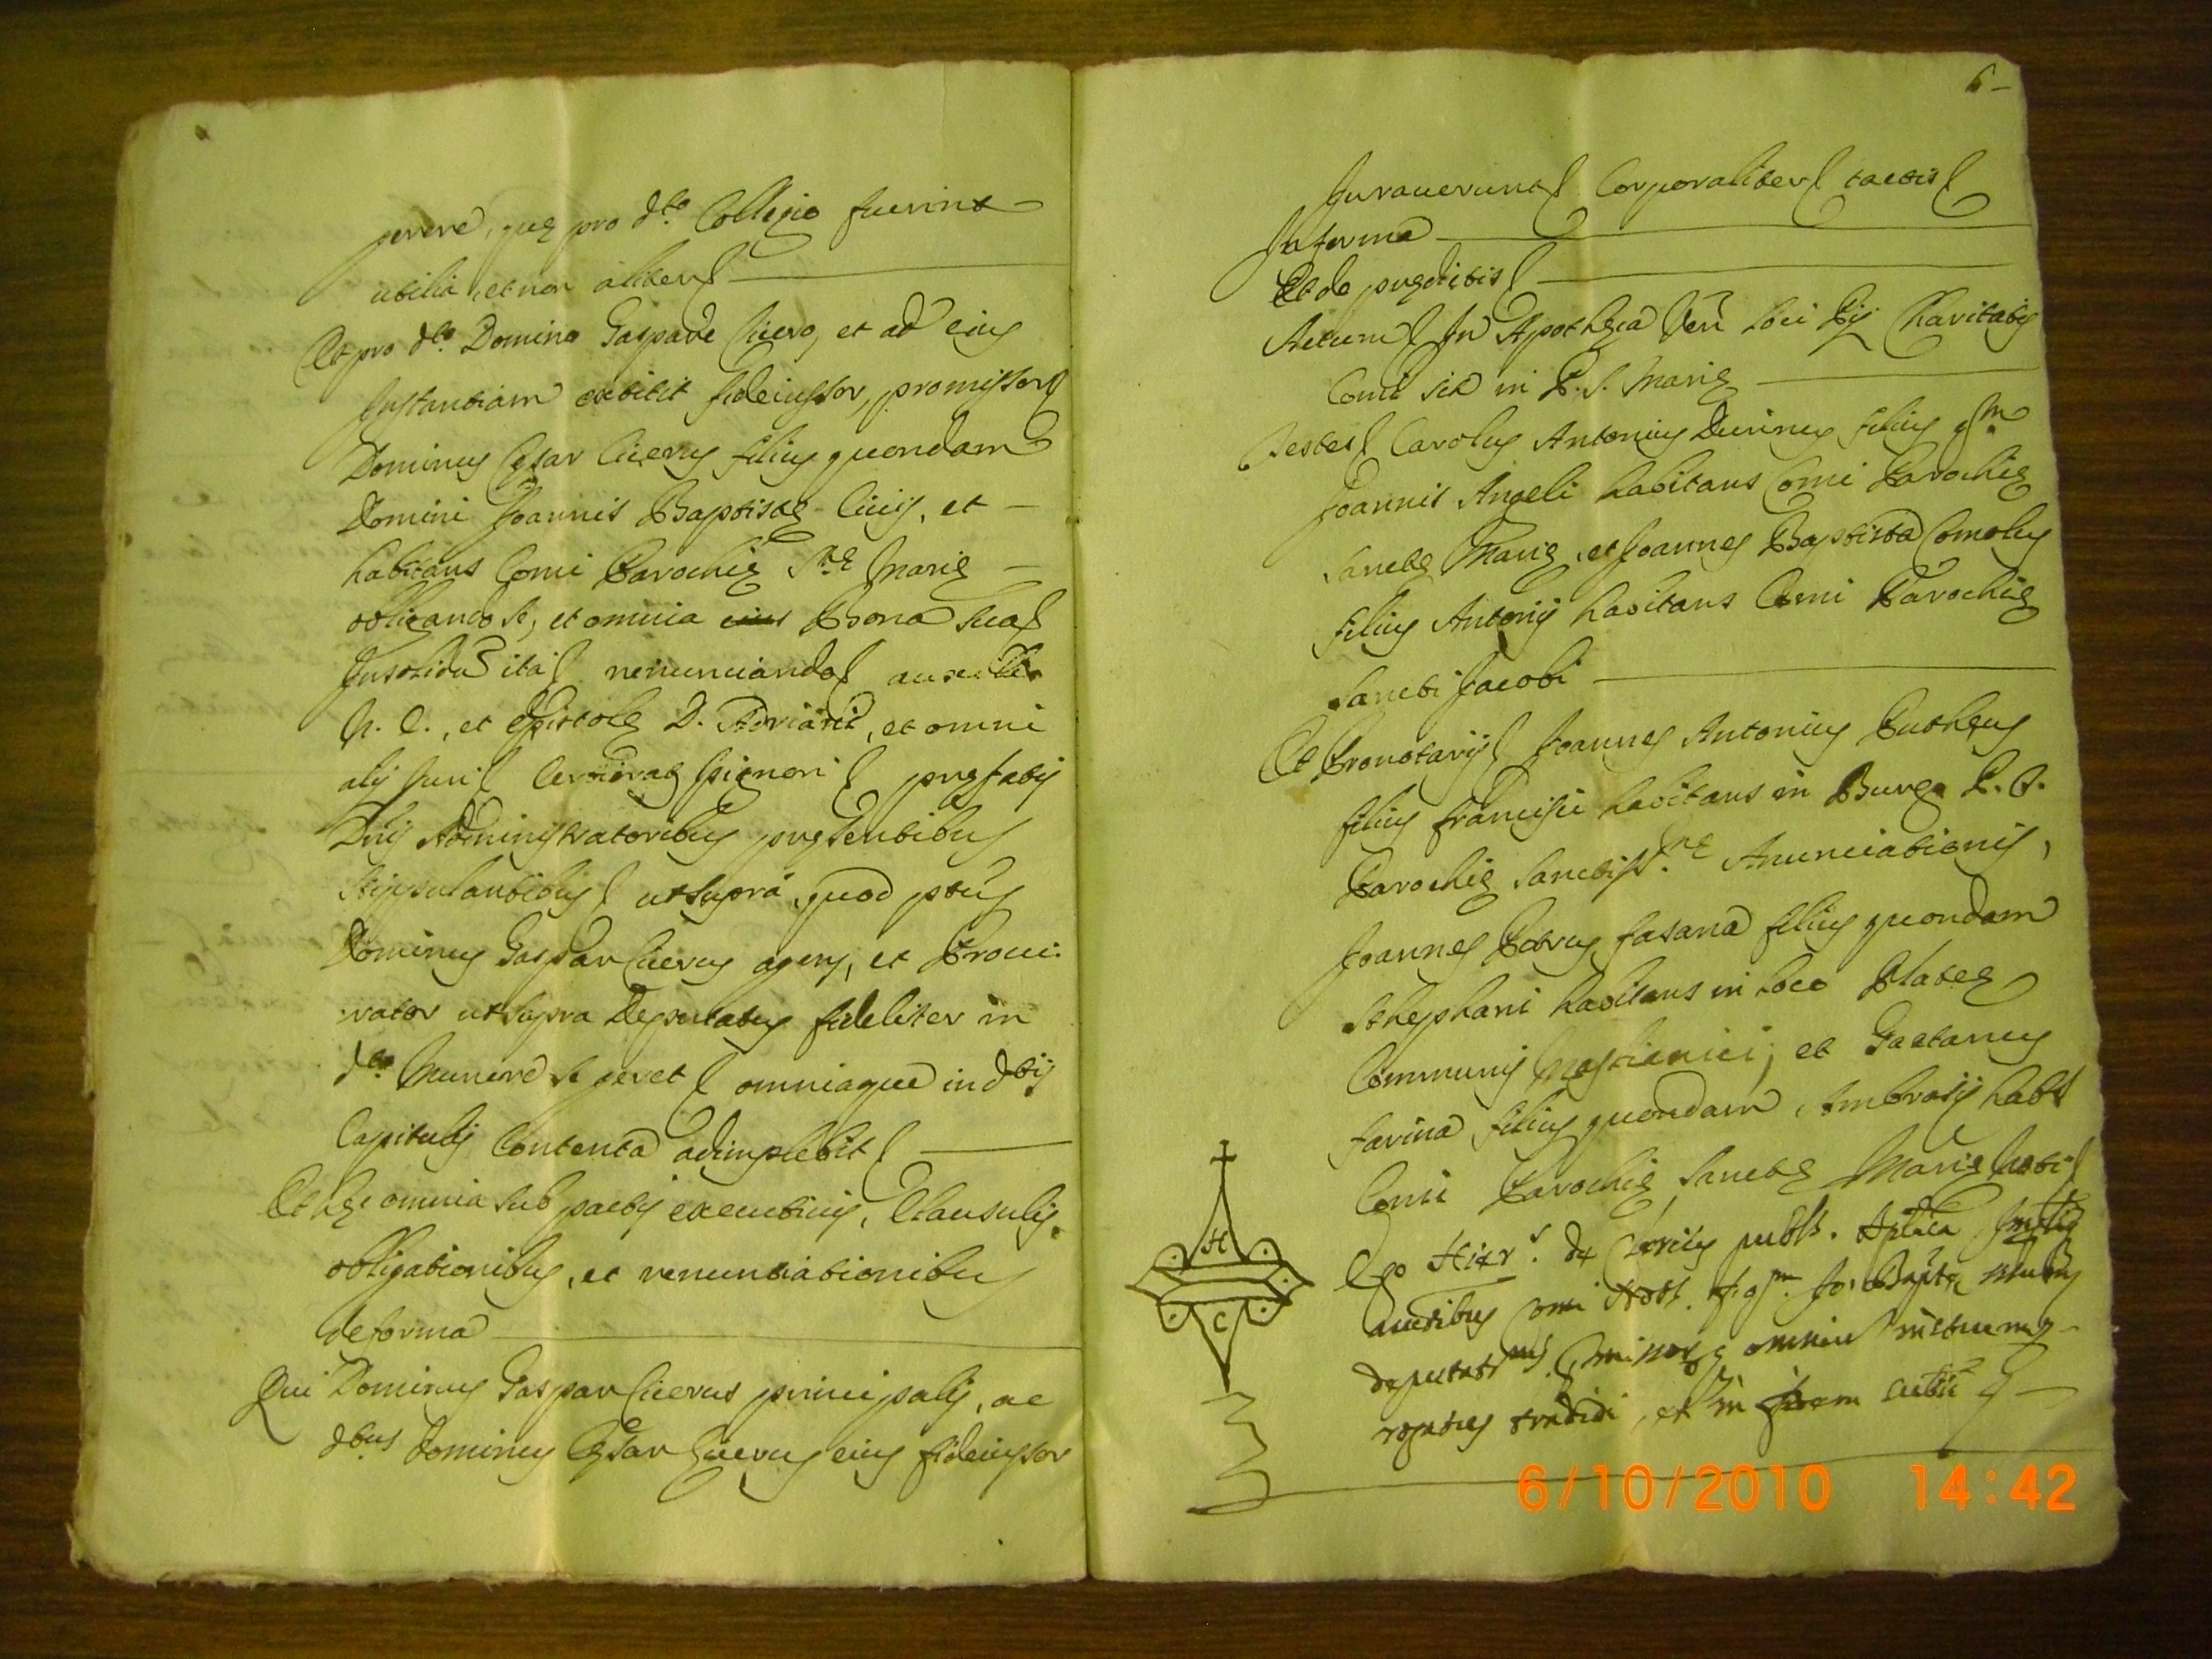 gerere, quę pro d.to Collegio fuerint
utilia, et non aliter
Et pro d.to Domino Gaspare Cicero, et ad eius
Instantiam extitit fideiussor, promissor
Dominus Cęsar Cicerus filius quondam
Domini Joannis Baptistę Civis, et
habitans Comi Parochię S.tę Marię
obligando se, et omnia eius Bona sua
Insolidū ita renunciando
N. C., et Epistolę D. Adriani, et omni
alij Juri pręfatis
Dnis Administratoribus pręsentibus
stippulantibus ut supra, quod ptus
Dominus Gaspar Cicerus agens, et Procu:
rator ut supra Deputatus fideliter in
d.to Munere se geret omniaque in dtis
Capitulis Contenta adimplebit
Et hęc omnia sub pactis executivis, Clausulis,
obligationibus, et renuntiationibus
de forma
Qui Dominus Gaspar Cicerus principalis, ac
dtus Dominus Cęsar Cicerus eius fideiussor
6
Juraverunt Corporaliter tactis
In forma
Et de pręditis
Actum In Apothęca Ven Loci Pij Charitatis
Comi sit in P. S. Marię
Testes Carolus Antonius Durinus filius q.m
Joannis Angeli habitans Comi Parochię
Sanctę Marię, et Joannes Baptista Comolus
filius Antonij habitans Comi Parochię
Sancti Jacobi
Et Pronotarij Joannes Antonius Puthęus
filius Francisci habitans in Burgo
Parochię Sanctiss.mę Anunciationis,
Joannes Petrus Fasana filius quondam
Stephani habitans in Loco Plateę
Communis et Gaetanus
Farina filius quondam Ambrosij habt
Comi Parochię Sanctę Marię
H
C
Ego Hier.s de publs. Aplica
Comi Nots. f. q.m Jo: Baptę
deputat
rogatus tradidi, et in fidem
6/10/2010 14:42